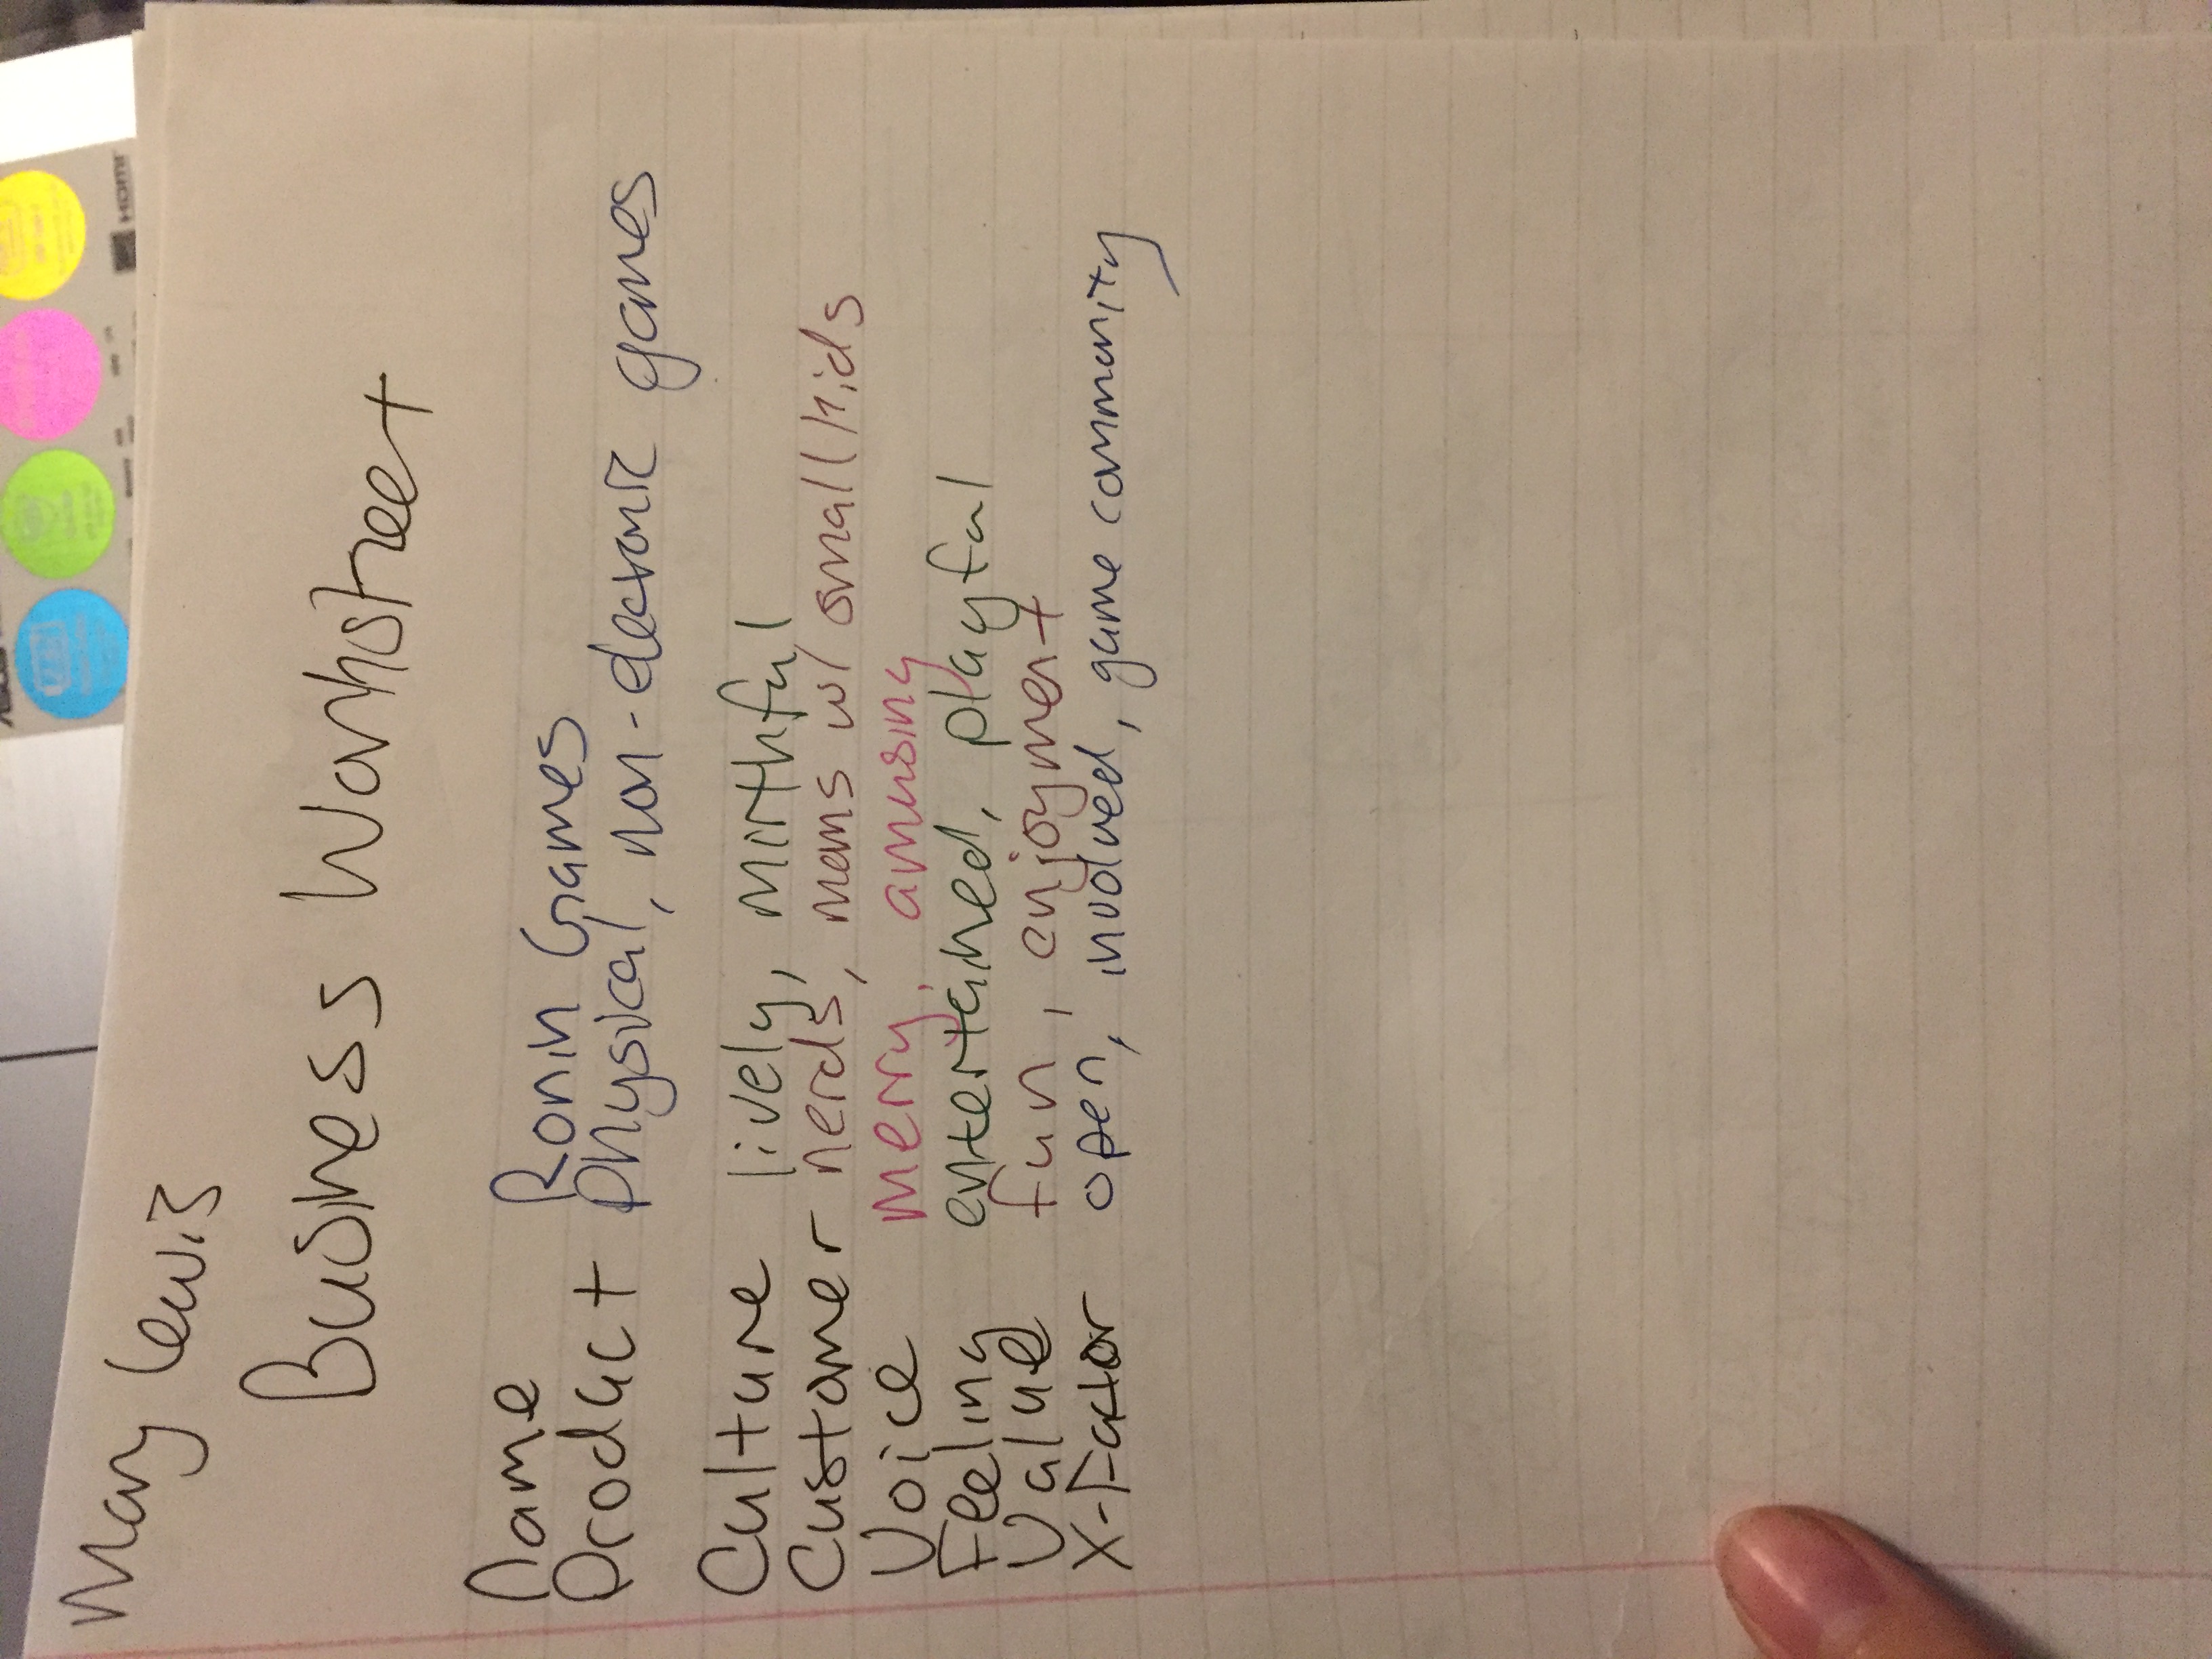 Mary Lewis
Business Worksheet
Name Ronin Games
Product physical, non-electronic games
Culture lively, mirthful
Customer nerds, moms w/ small kids
Voice merry, amusing
Feeling entertained, playful
Value fun, enjoyment
X-Factor open, involved, game community
HDMI